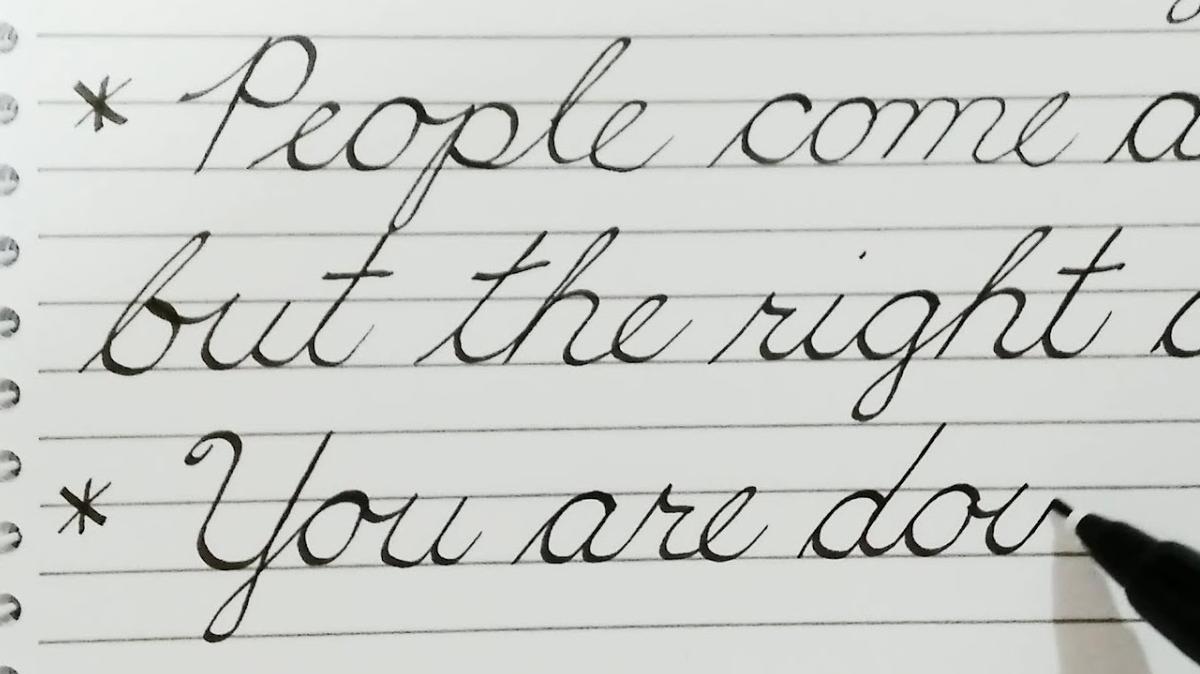 * People come a
but the right
* You are dou